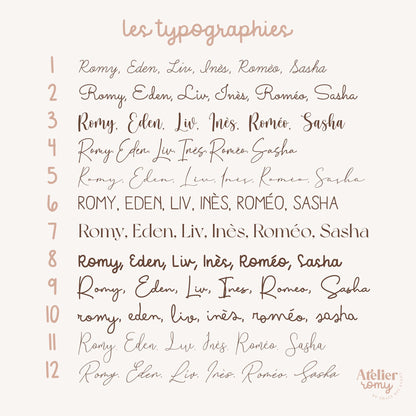 les typographies
1 Romy, Eden, Liv, Inès, Roméo, Sasha
2 Romy, Eden, Liv, Inès, Roméo, Sasha
3 Romy, Eden, Liv, Inès, Roméo, Sasha
4 Romy Eden Liv Inès Roméo Sasha
5 Romy, Eden, Liv, Ines, Romeo, Sasha
6 ROMY, EDEN, LIV, INÈS, ROMÉO, SASHA
7 Romy, Eden, Liv, Inès, Roméo, Sasha
8 Romy, Eden, Liv, Inès, Roméo, Sasha
9 Romy, Eden, Liv, Ines, Romeo, Sasha
10 romy, eden, liv, inès, roméo, sasha
11 Romy Eden, Liv, Inès, Roméo Sasha
12 Romy, Eden, Liv, Inès, Roméo, Sasha
Atelier
romy